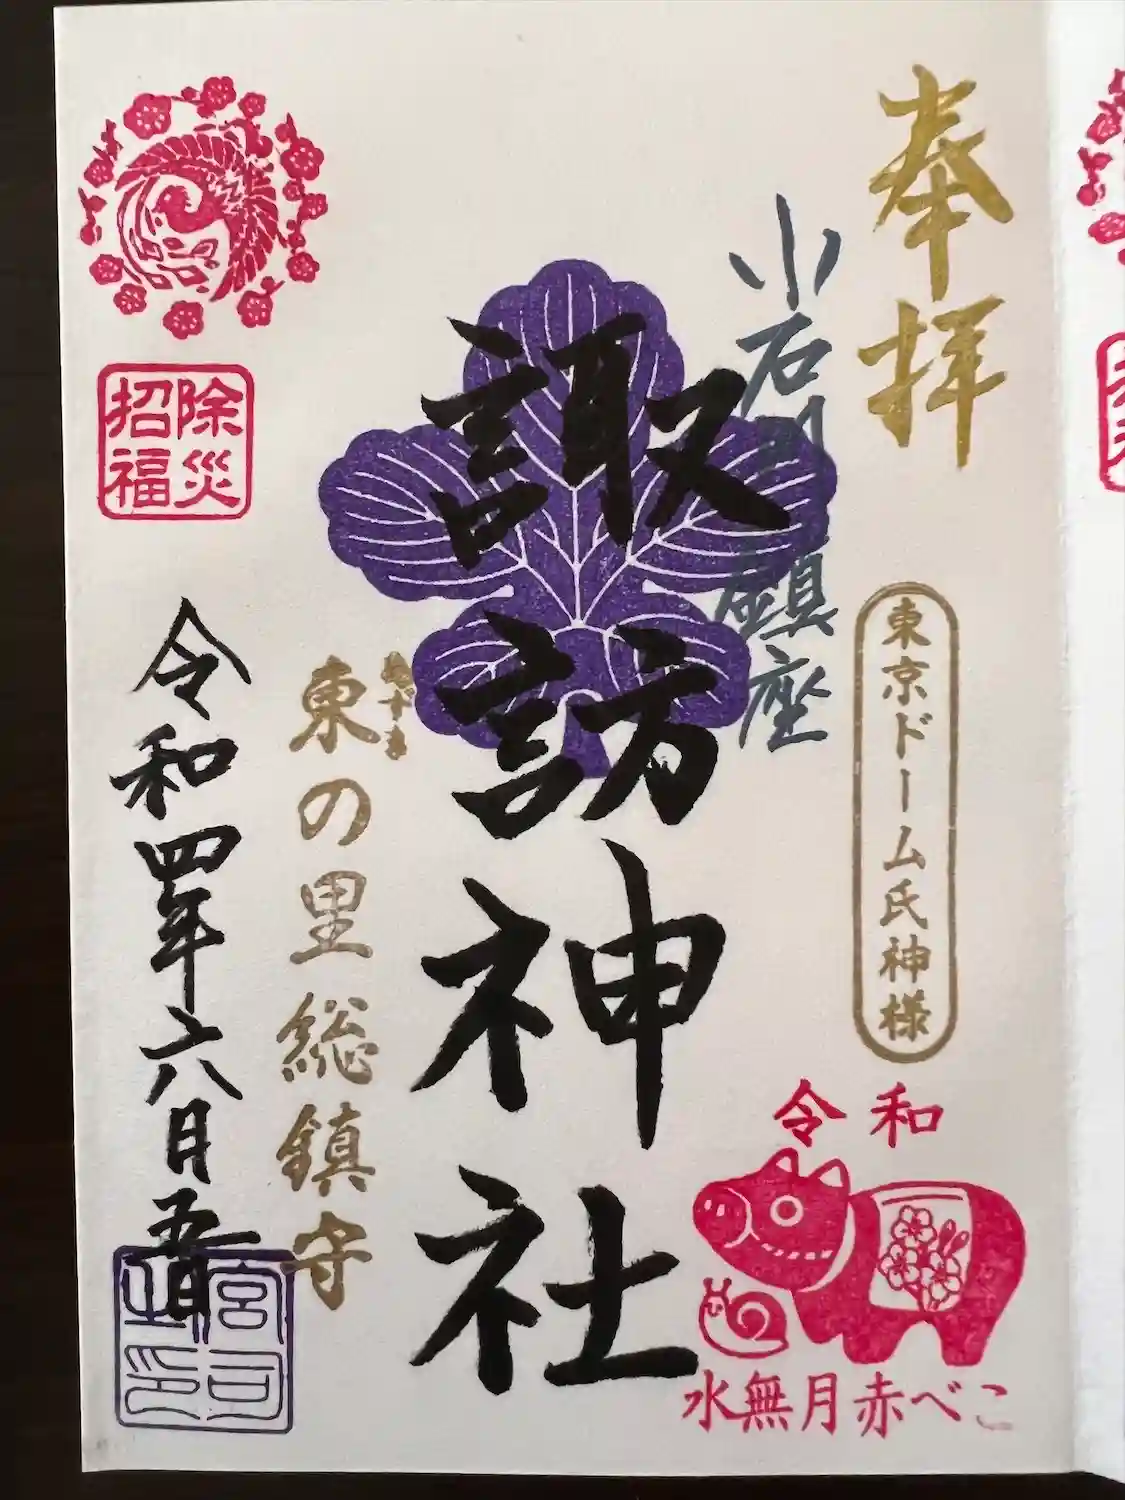 奉拝
小石川鎮座
東京ドーム氏神様
諏訪神社
東の里総鎮守
除災
招福
令和四年六月五日
令和
水無月赤べこ
宮司之印